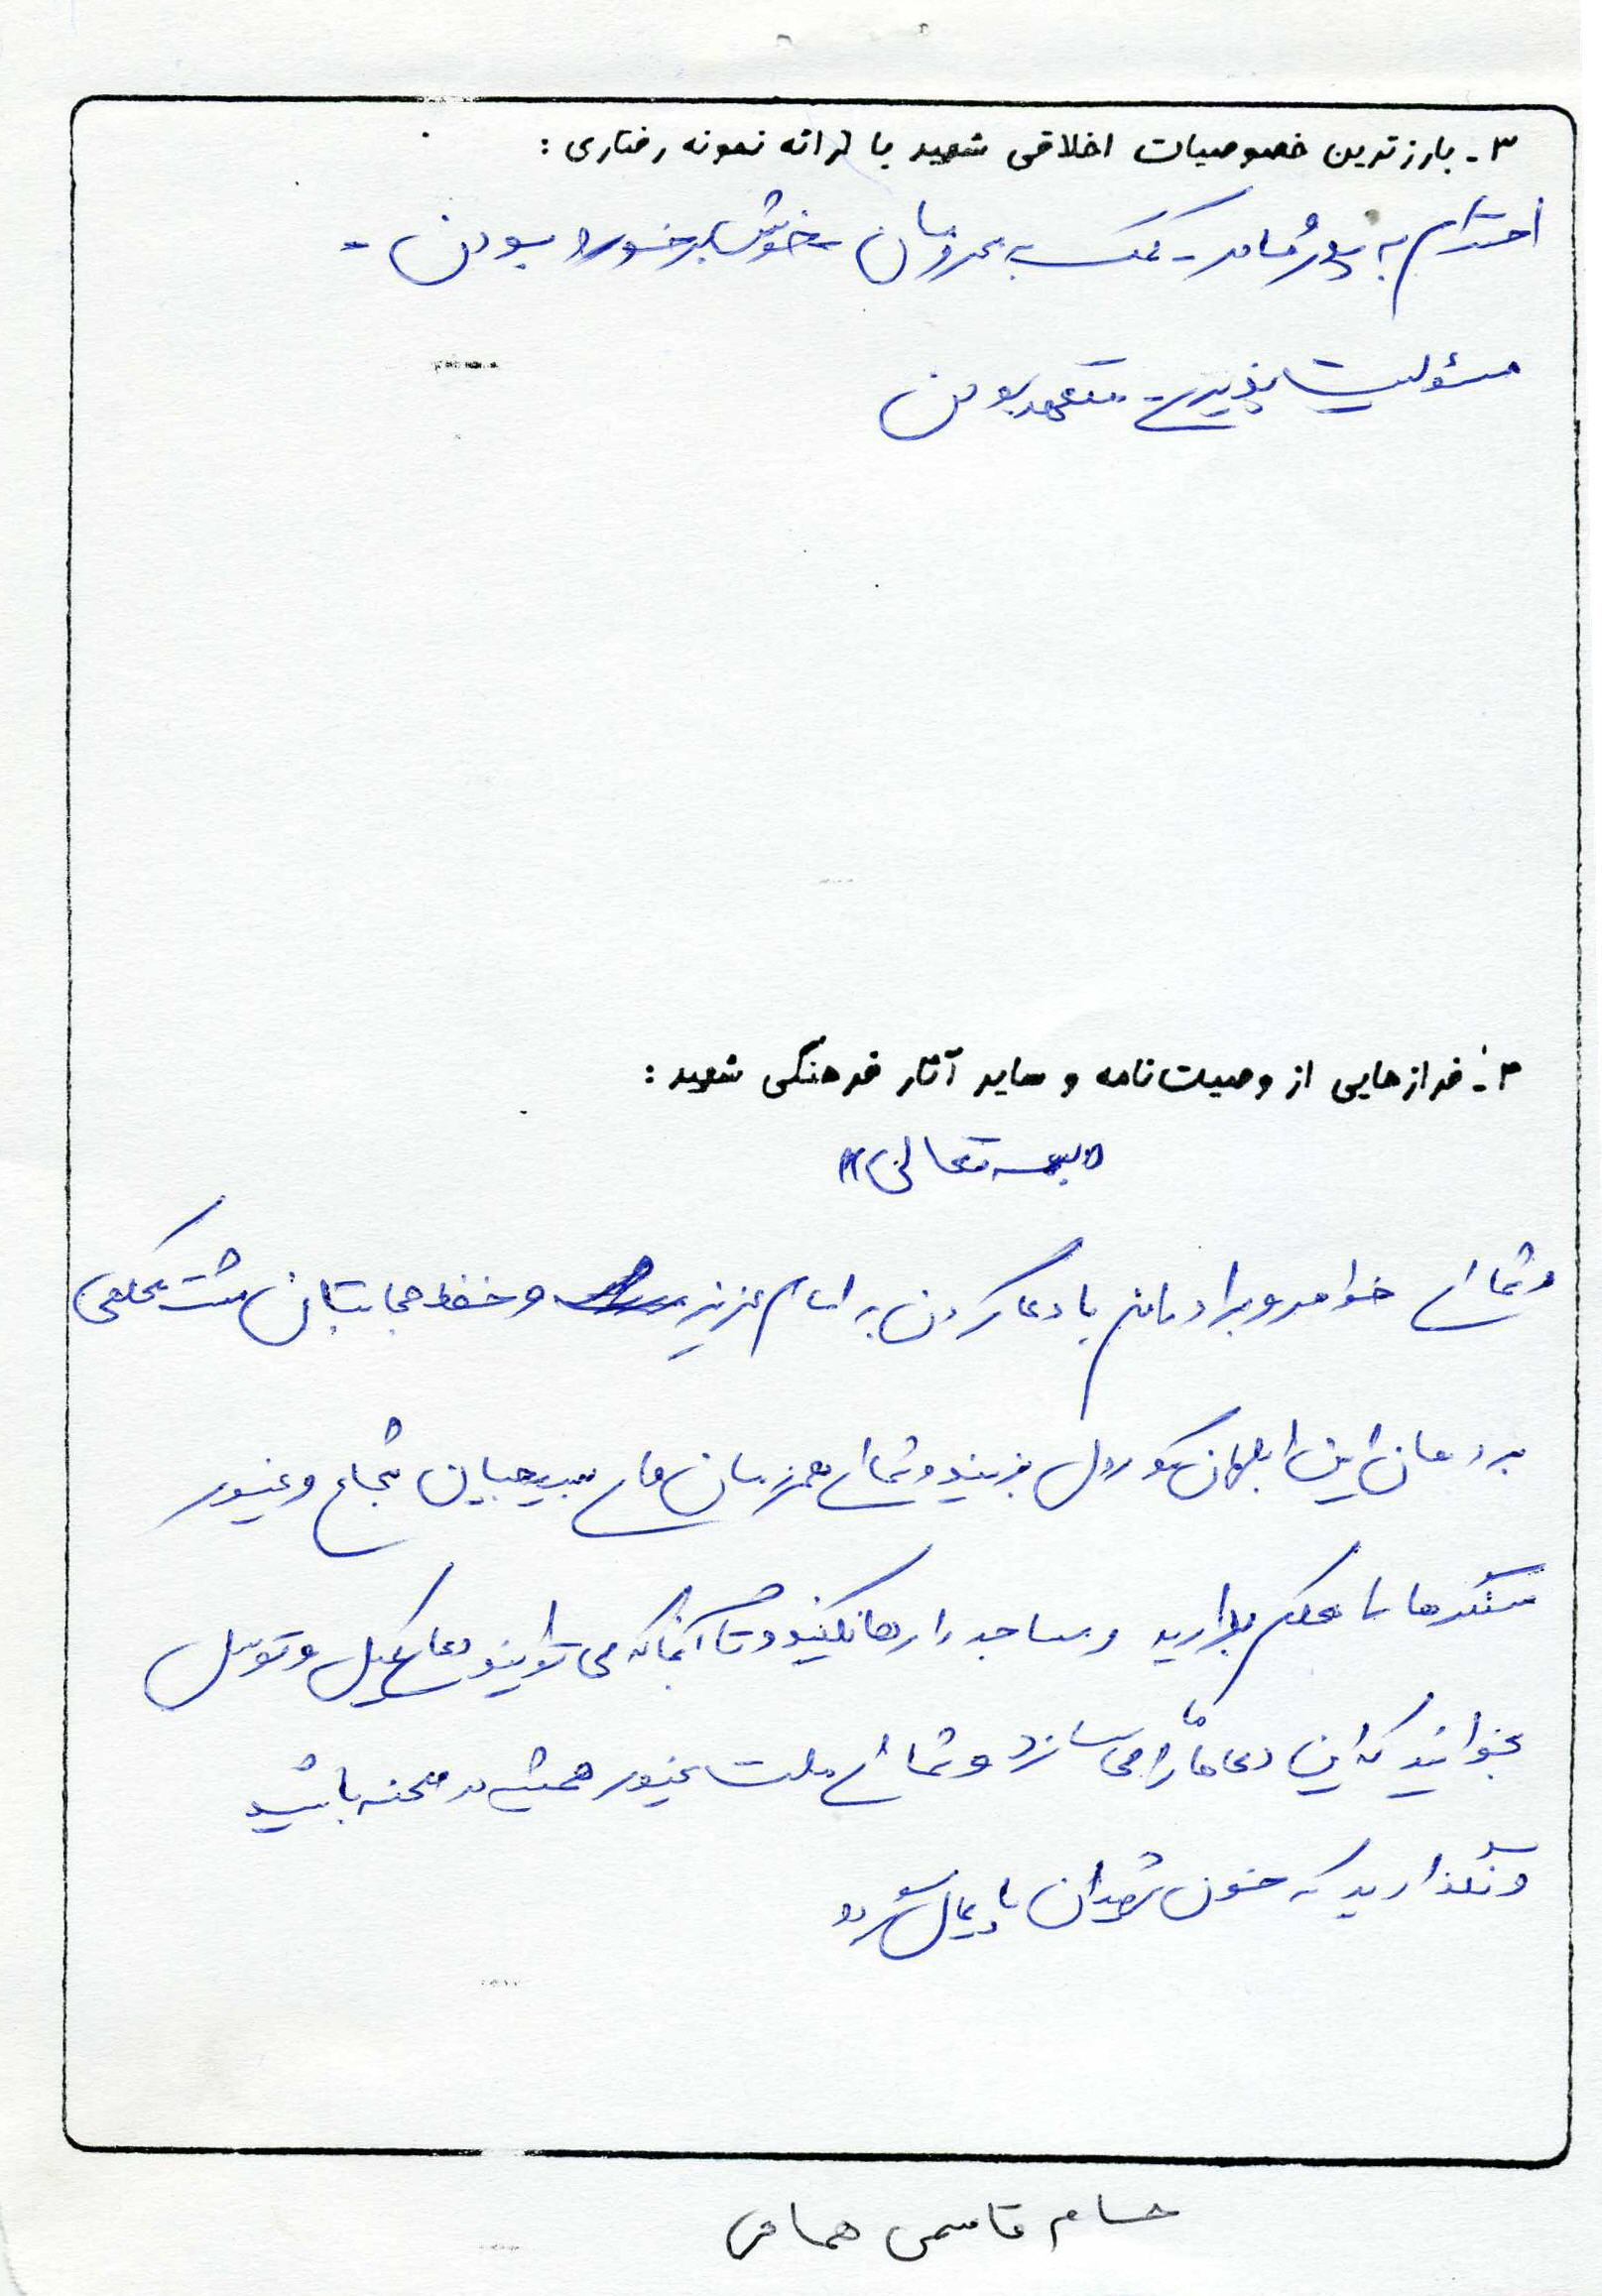 ۳- بارزترین خصوصیات اخلاقی شهید با ارائه نمونه رفتاری :
احترام به پدر و مادر - کمک به محرومان - خوش برخورد بودن -
مسئولیت پذیری - متعهد بودن
۴- فرازهایی از وصیت‌نامه و سایر آثار فرهنگی شهید :
«بسمه تعالی»
و شما ای خواهر و برادرانم با دعا کردن به امام عزیز و حفظ حجابتان مشت محکمی
بر دهان این ابلهان کوردل بزنید و شما ای همرزمان و ای بسیجیان شجاع و غیور
سنگرها را محکم بدارید و مساجد را رها نکنید و تا آنجا که می توانید دعای کمیل و توسل
بخوانید که این دعاها ما را می سازد و شما ای ملت غیور همیشه در صحنه باشید
و نگذارید که خون شهیدان پایمال شود
حسام قاسمی همامی